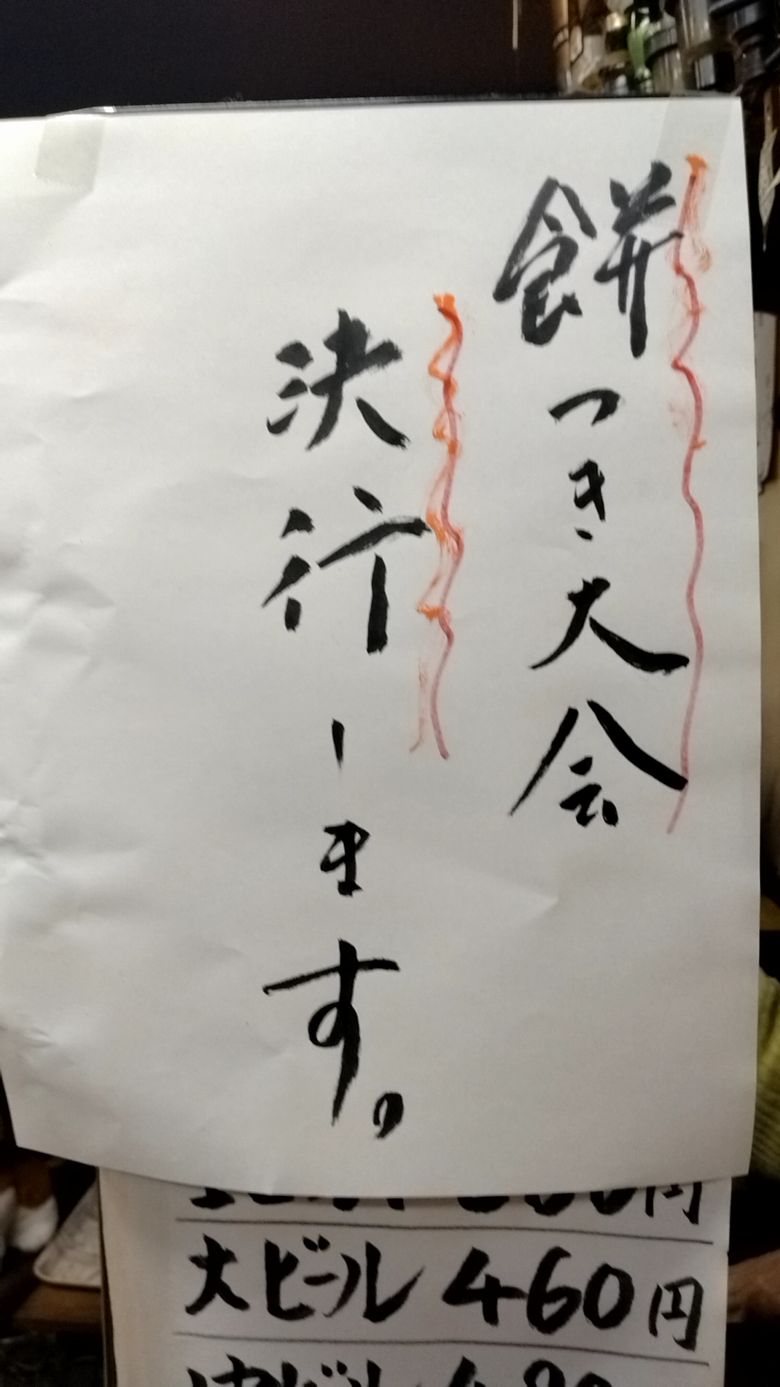 餅つき大会
決行します。
大ビール 460円